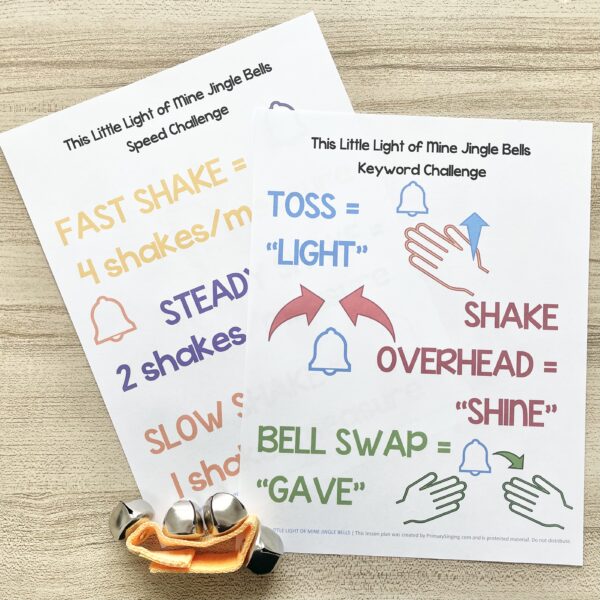 This Little Light of Mine Jingle Bells
Speed Challenge
FAST SHAKE =
4 shakes/m
STEADY
2 shakes
SLOW S
1 sha
This Little Light of Mine Jingle Bells
Keyword Challenge
TOSS =
“LIGHT”
SHAKE
OVERHEAD =
“SHINE”
BELL SWAP =
“GAVE”
LITTLE LIGHT OF MINE JINGLE BELLS | This lesson plan was created by PrimarySinging.com and is protected material. Do not distribute.